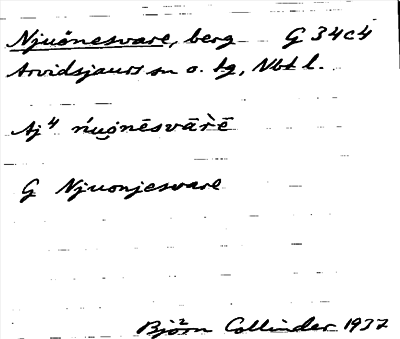 Njuånesvare, berg G 34c4
Arvidsjaurs sn o. tg, Vbt l.
Aj⁴ ńuo̯nēsvār̀ē
G Njuonjesvare
Björn Collinder 1937